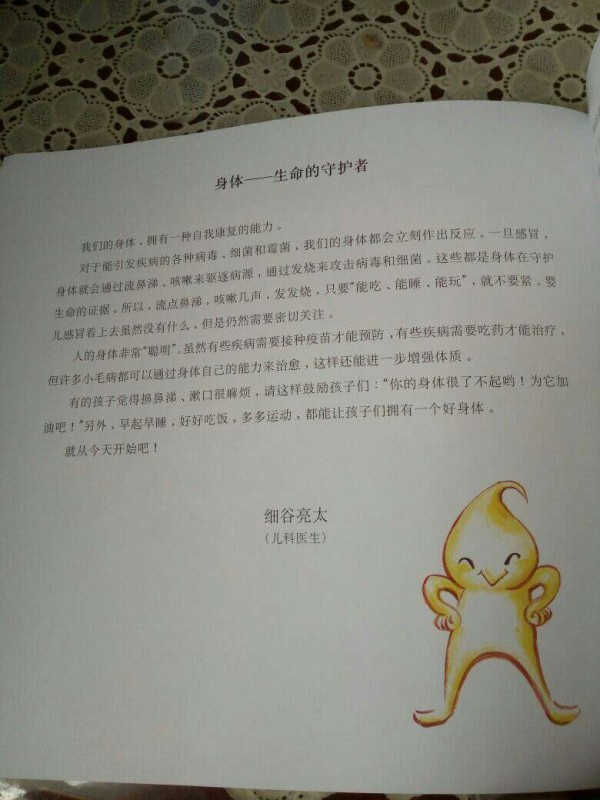 身体——生命的守护者
我们的身体，拥有一种自我康复的能力。
对于能引发疾病的各种病毒、细菌和霉菌，我们的身体都会立刻作出反应。一旦感冒，
身体就会通过流鼻涕、咳嗽来驱逐病源，通过发烧来攻击病毒和细菌。这些都是身体在守护
生命的证据。所以，流点鼻涕，咳嗽几声，发发烧，只要“能吃、能睡、能玩”，就不要紧。婴
儿感冒看上去虽然没有什么，但是仍然需要密切关注。
人的身体非常“聪明”。虽然有些疾病需要接种疫苗才能预防，有些疾病需要吃药才能治疗，
但许多小毛病都可以通过身体自己的能力来治愈，这样还能进一步增强体质。
有的孩子觉得擤鼻涕、漱口很麻烦，请这样鼓励孩子们：“你的身体很了不起哟！为它加
油吧！”另外，早起早睡，好好吃饭，多多运动，都能让孩子们拥有一个好身体。
就从今天开始吧！
细谷亮太
（儿科医生）